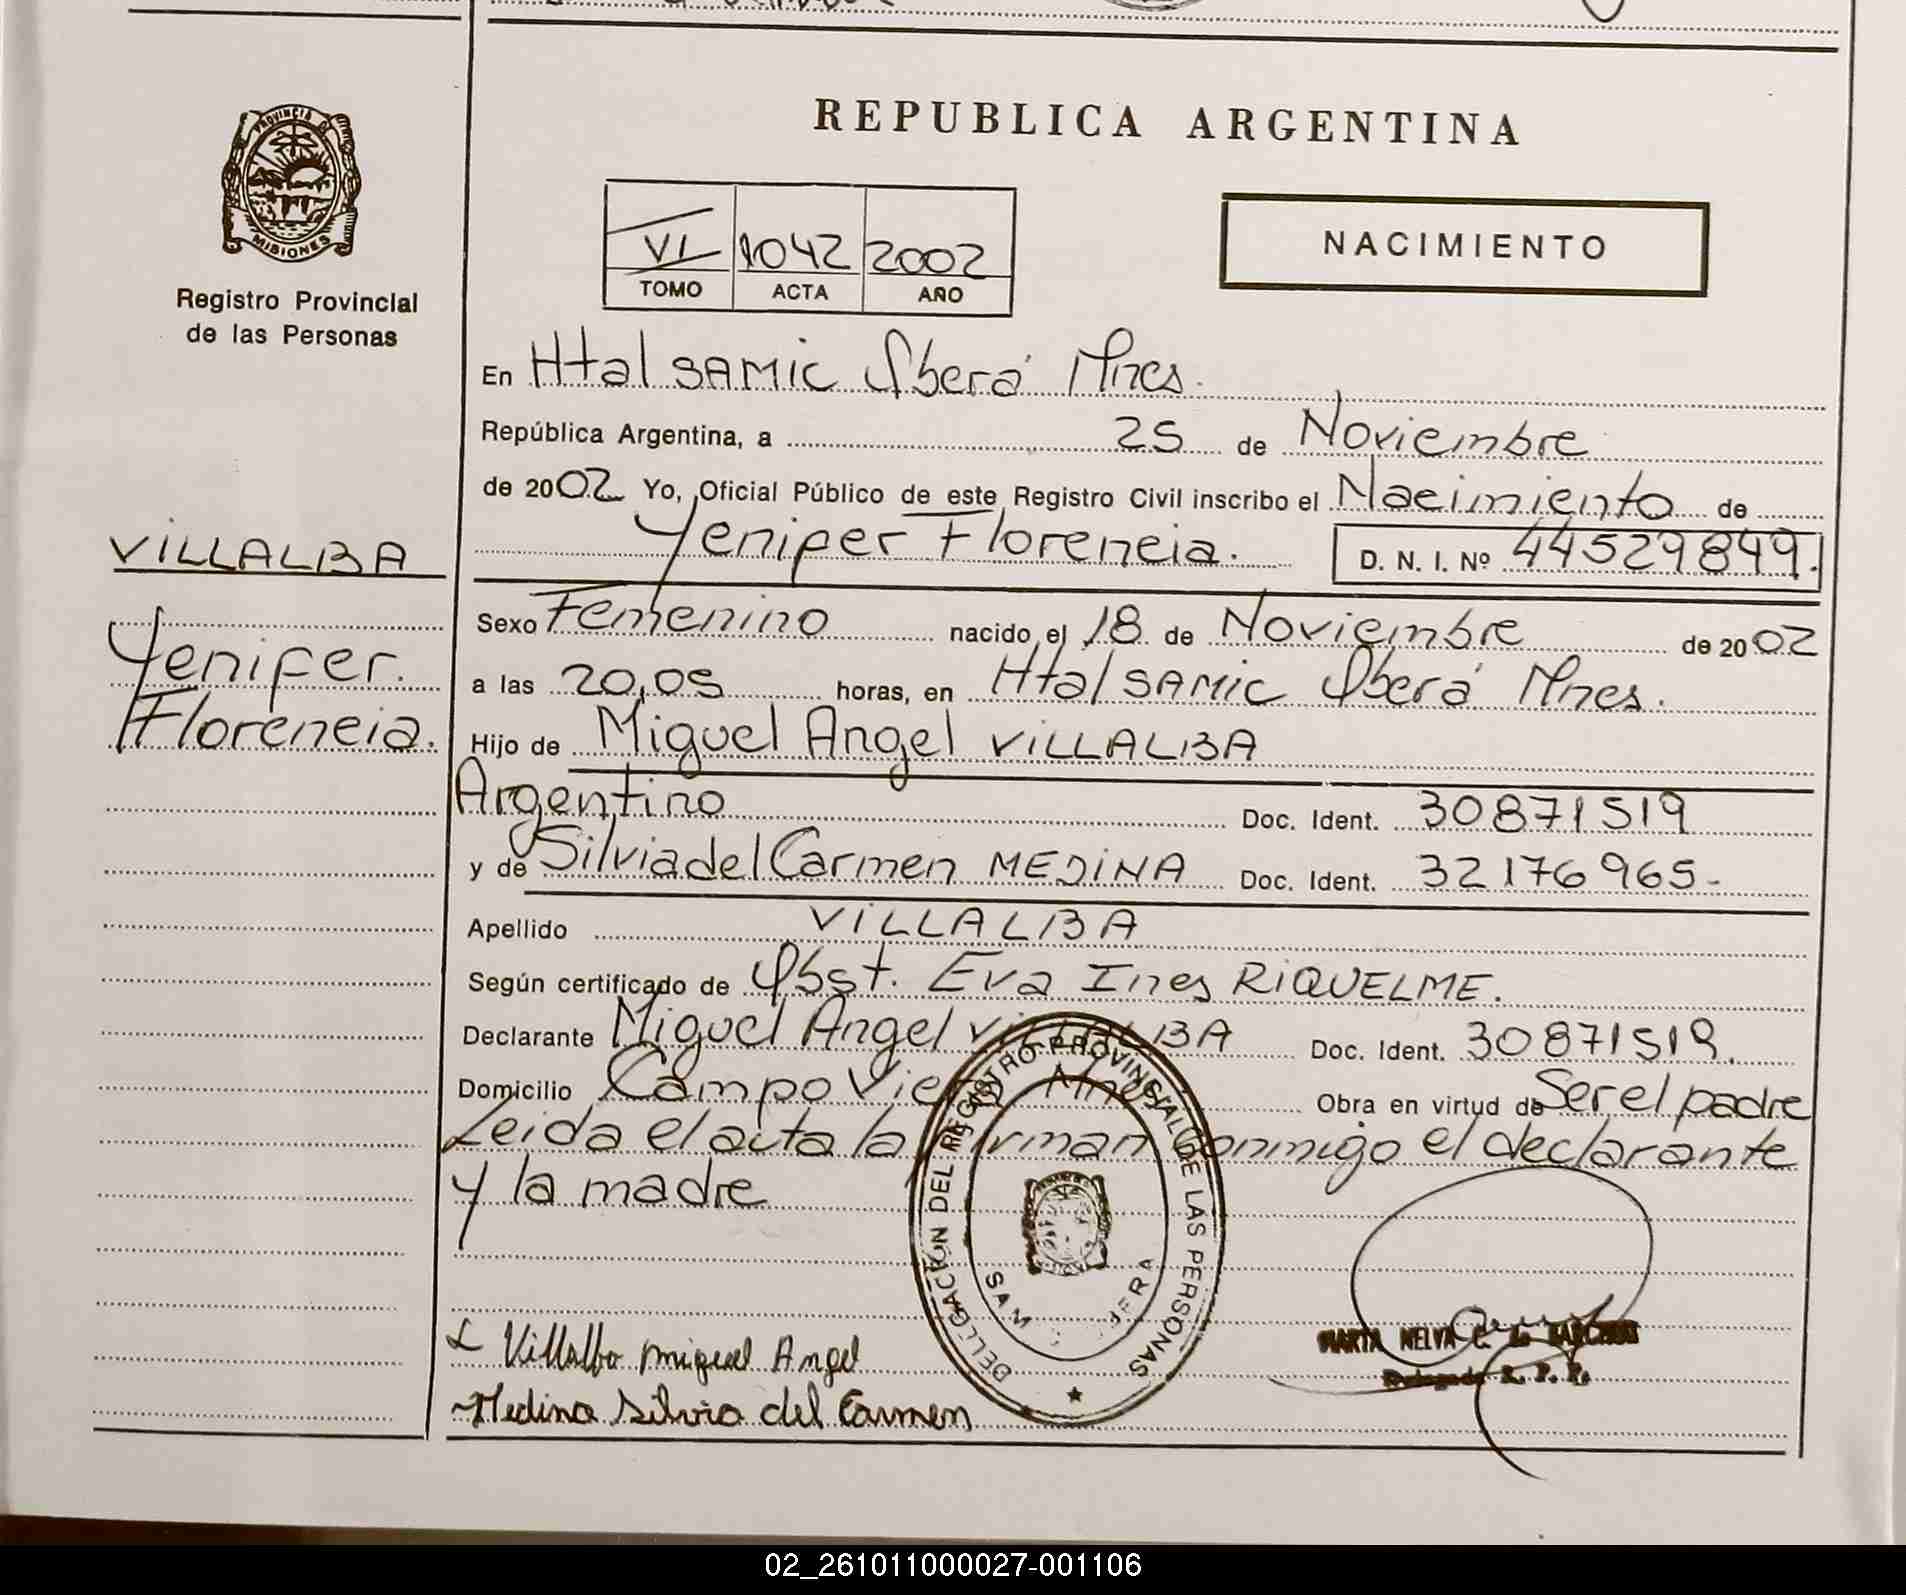 REPUBLICA ARGENTINA
PROVINCIA DE
MISIONES
Registro Provincial
de las Personas
VI 1042 2002
TOMO ACTA AÑO
NACIMIENTO
En Htal SAMIC Oberá Mnes.
República Argentina, a 25 de Noviembre
de 2002 Yo, Oficial Público de este Registro Civil inscribo el Nacimiento de
Yenifer Florencia. D. N. I. Nº 44529849.
VILLALBA
Yenifer
Florencia.
Sexo Femenino nacido el 18 de Noviembre de 2002
a las 20,05 horas, en Htal SAMIC Oberá Mnes.
Hijo de Miguel Angel VILLALBA
Argentino Doc. Ident. 30871519
y de Silvia del Carmen MEDINA Doc. Ident. 32176965-
Apellido VILLALBA
Según certificado de Obst. Eva Ines RIQUELME.
Declarante Miguel Angel VILLALBA Doc. Ident. 30871519.
Domicilio Campo Viera Mnes Obra en virtud de Ser el padre
Leida el acta la firman conmigo el declarante
y la madre
DELEGACION DEL REGISTRO PROVINCIAL DE LAS PERSONAS
Villalba Miguel Angel
Medina Silvia del Carmen
MARTA NELVA
Delegada R. P. P.
02_261011000027-001106